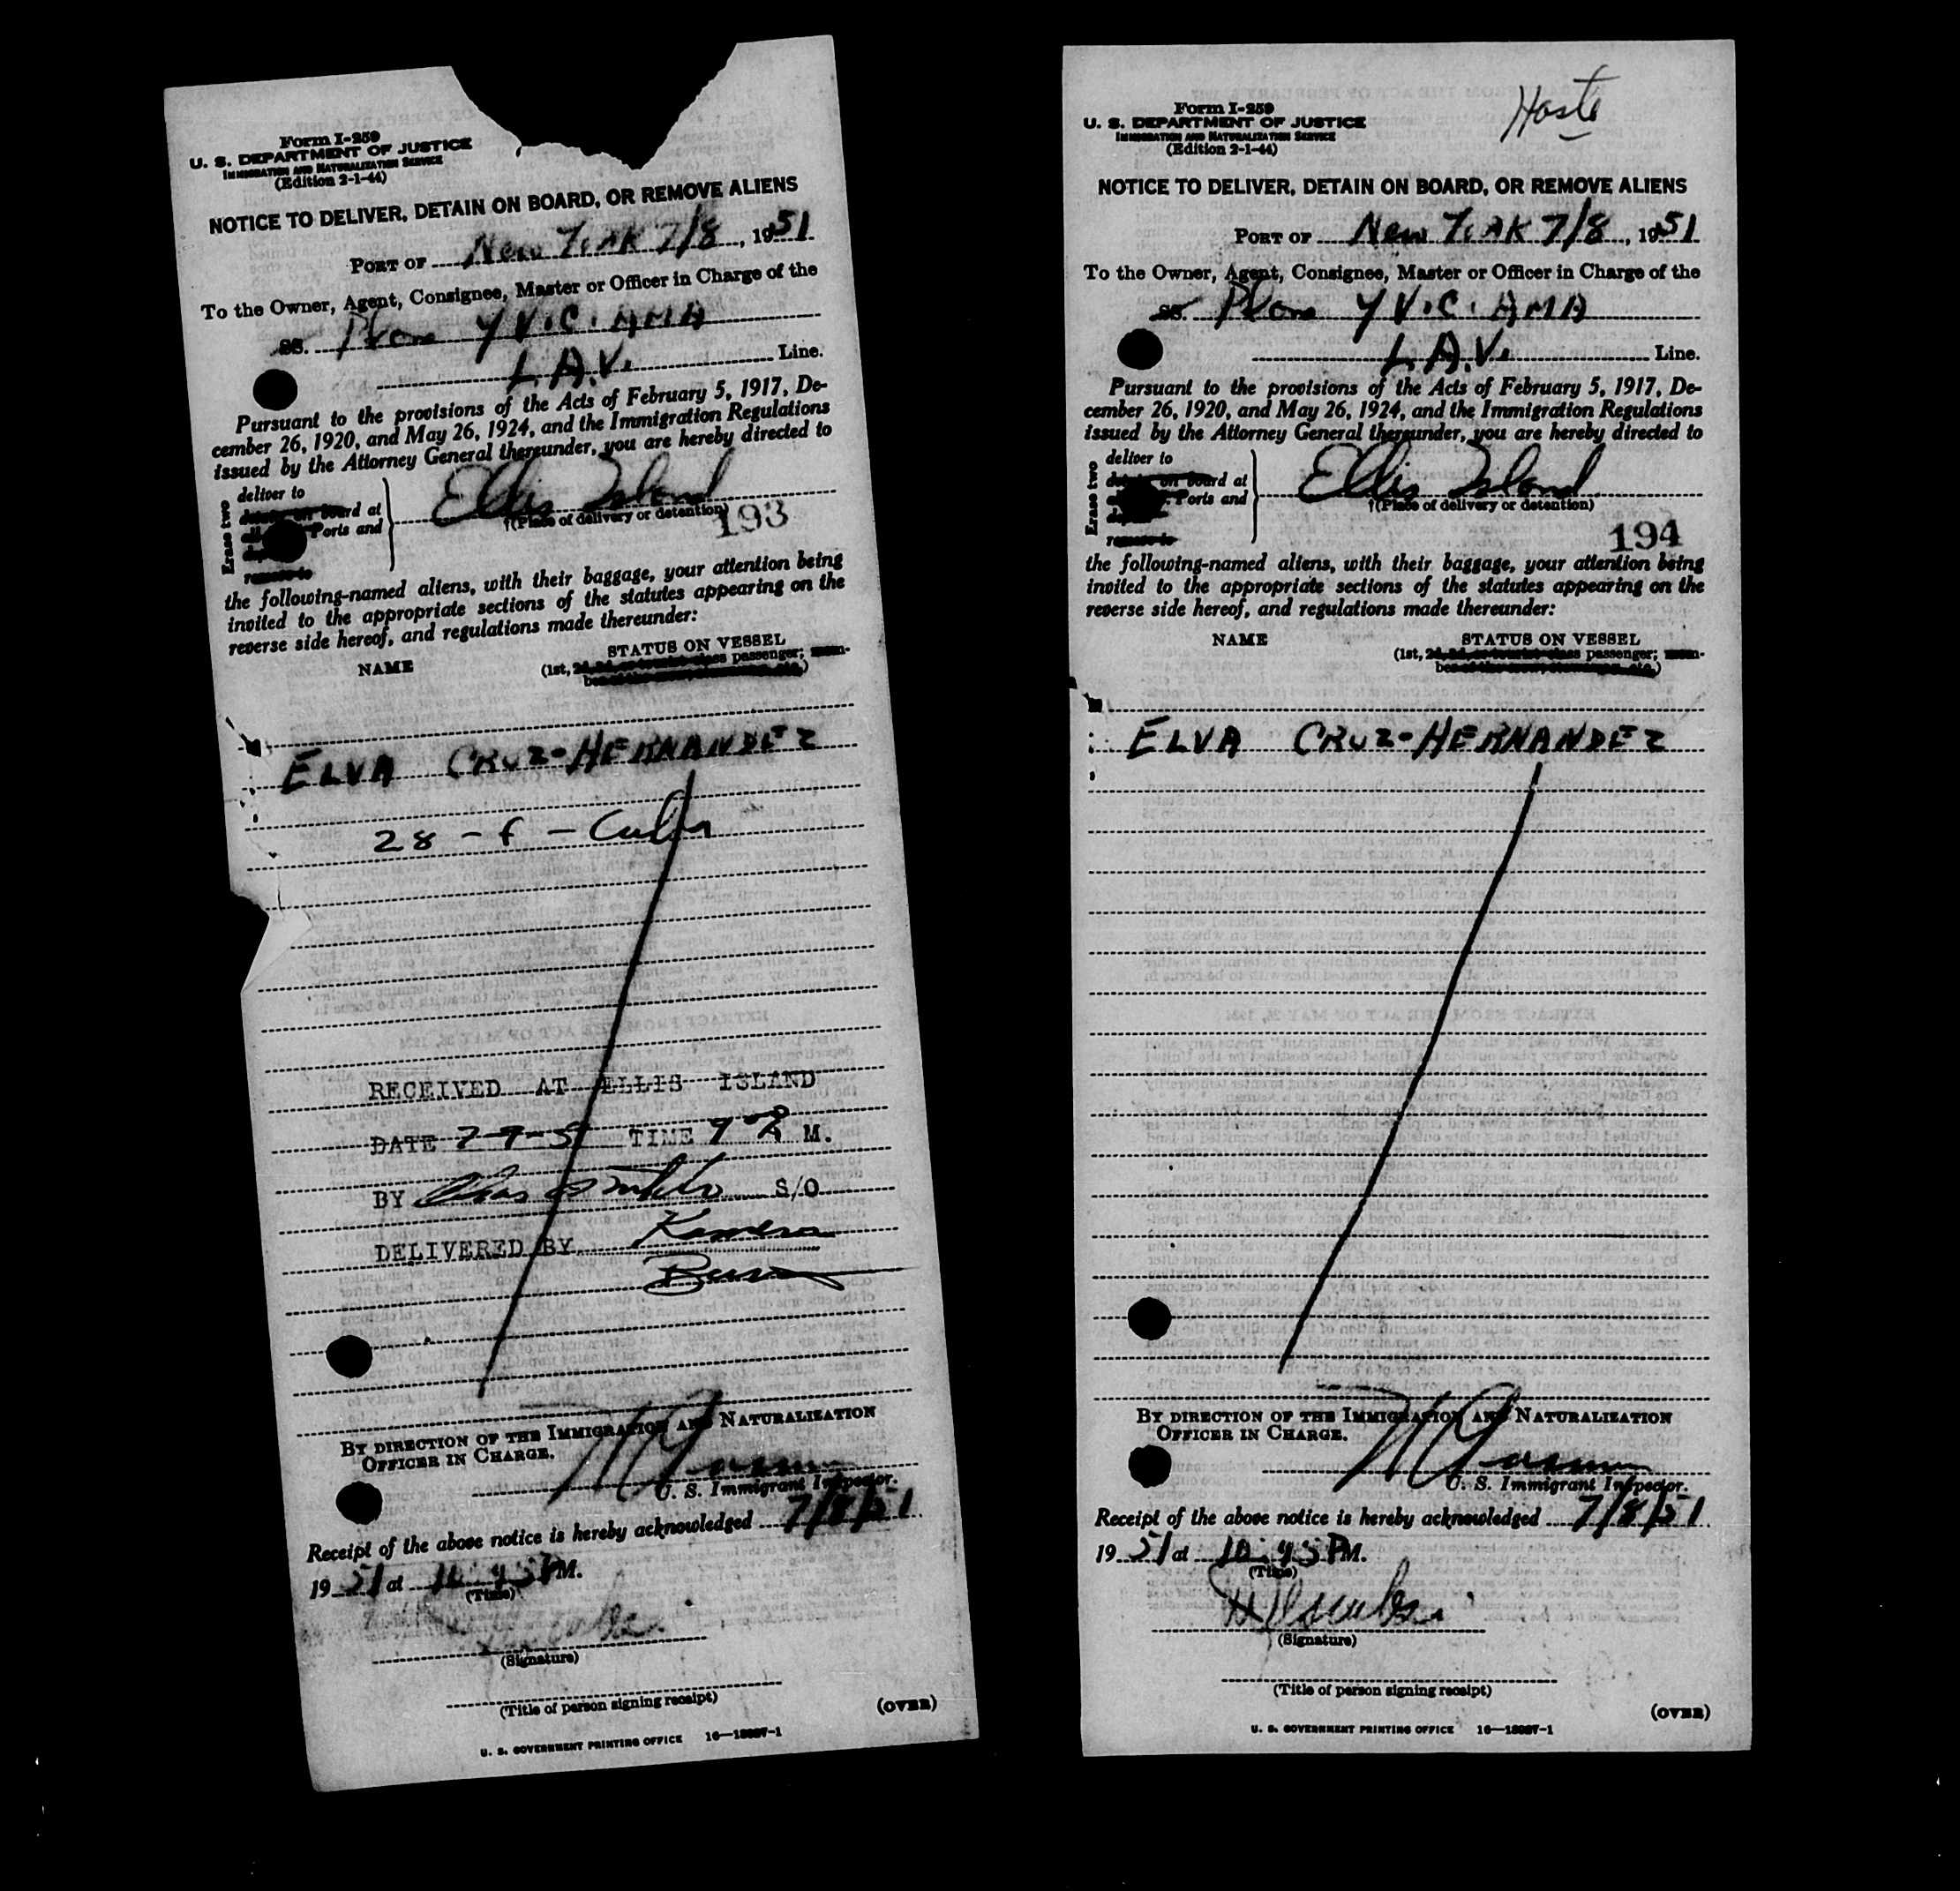 Form I-259
U. S. DEPARTMENT OF JUSTICE
IMMIGRATION AND NATURALIZATION SERVICE
(Edition 2-1-44)
NOTICE TO DELIVER, DETAIN ON BOARD, OR REMOVE ALIENS
PORT OF New York 7/8, 1951
To the Owner, Agent, Consignee, Master or Officer in Charge of the
SS. Plane YV.C. AMA
L.A.V. Line.
Pursuant to the provisions of the Acts of February 5, 1917, De-
cember 26, 1920, and May 26, 1924, and the Immigration Regulations
issued by the Attorney General thereunder, you are hereby directed to
Erase two
deliver to
detain on board at
Ports and
remove to
Ellis Island
†(Place of delivery or detention)
193
the following-named aliens, with their baggage, your attention being
invited to the appropriate sections of the statutes appearing on the
reverse side hereof, and regulations made thereunder:
NAME STATUS ON VESSEL
(1st, 2d, 3d, or tourist class passenger; mem-
ber of the crew, stowaway, etc.)
ELVA CRUZ-HERNANDEZ
28 - f - Cuba
RECEIVED AT ELLIS ISLAND
DATE 7-9-51 TIME M.
BY S/O
DELIVERED BY
BY DIRECTION OF THE IMMIGRATION AND NATURALIZATION
OFFICER IN CHARGE.
U. S. Immigrant Inspector.
Receipt of the above notice is hereby acknowledged 7/8/51
1951 at 10:45 PM.
(Time)
(Signature)
(Title of person signing receipt)
(OVER)
U. S. GOVERNMENT PRINTING OFFICE
Form I-259
U. S. DEPARTMENT OF JUSTICE
IMMIGRATION AND NATURALIZATION SERVICE
(Edition 2-1-44)
Haste
NOTICE TO DELIVER, DETAIN ON BOARD, OR REMOVE ALIENS
PORT OF New York 7/8, 1951
To the Owner, Agent, Consignee, Master or Officer in Charge of the
SS. Plane YV.C. AMA
L.A.V. Line.
Pursuant to the provisions of the Acts of February 5, 1917, De-
cember 26, 1920, and May 26, 1924, and the Immigration Regulations
issued by the Attorney General thereunder, you are hereby directed to
Erase two
deliver to
detain on board at
Ports and
remove to
Ellis Island
†(Place of delivery or detention)
194
the following-named aliens, with their baggage, your attention being
invited to the appropriate sections of the statutes appearing on the
reverse side hereof, and regulations made thereunder:
NAME STATUS ON VESSEL
(1st, 2d, 3d, or tourist class passenger; mem-
ber of the crew, stowaway, etc.)
ELVA CRUZ-HERNANDEZ
BY DIRECTION OF THE IMMIGRATION AND NATURALIZATION
OFFICER IN CHARGE.
U. S. Immigrant Inspector.
Receipt of the above notice is hereby acknowledged 7/8/51
1951 at 10:45 PM.
(Time)
(Signature)
(Title of person signing receipt)
(OVER)
U. S. GOVERNMENT PRINTING OFFICE